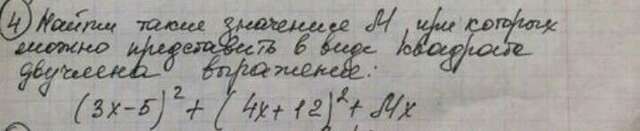 4) Найти такие значение M, при которых
можно представить в виде квадрата
двучлена выражение:
(3x-5)² + (4x+12)² + Mx